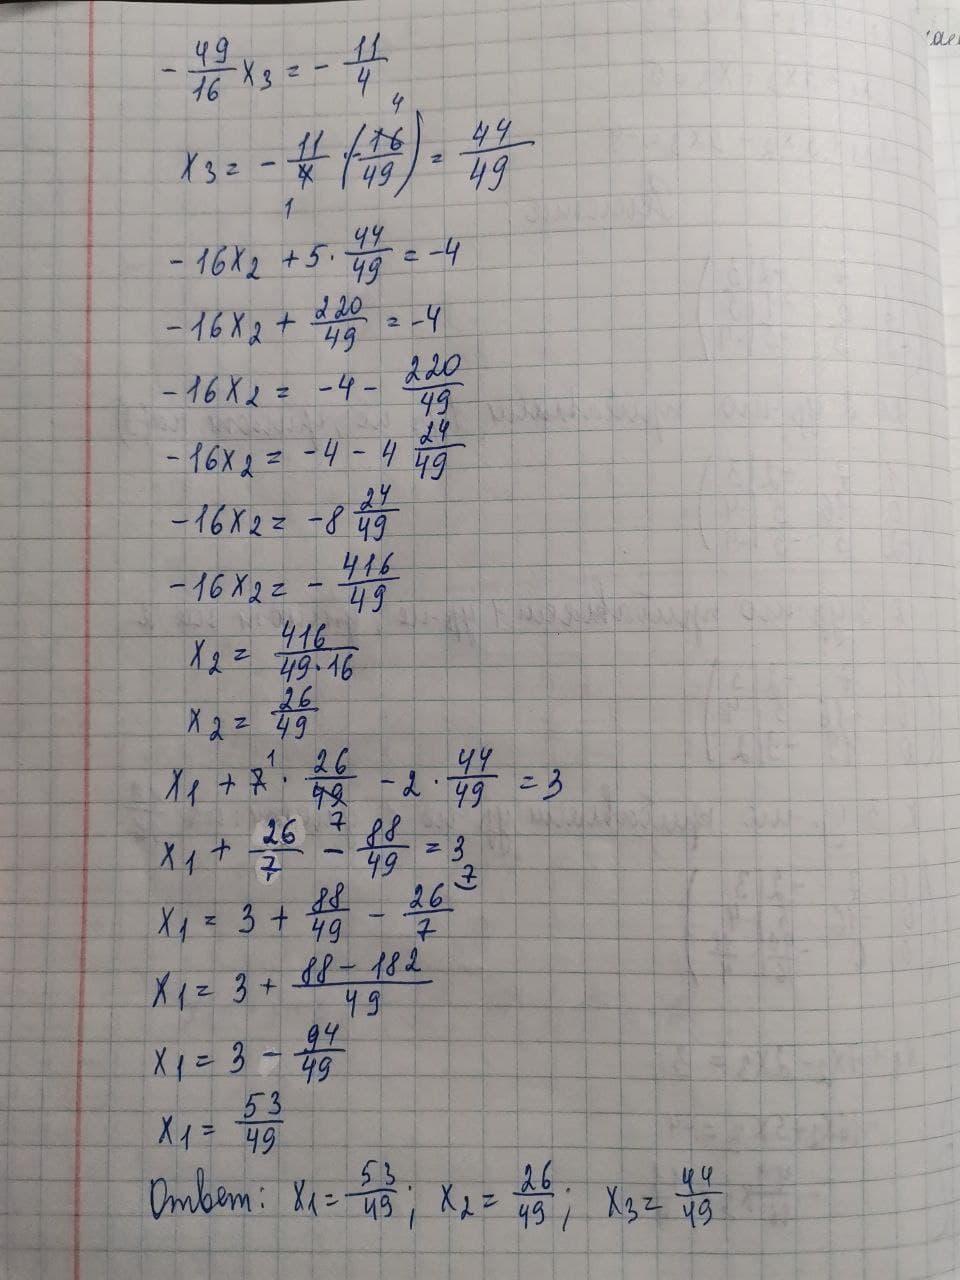 -49/16 x₃ = -11/4
x₃ = -11/4 · (-16/49) = 44/49
4
1
-16x₂ + 5 · 44/49 = -4
-16x₂ + 220/49 = -4
-16x₂ = -4 - 220/49
-16x₂ = -4 - 4 24/49
-16x₂ = -8 24/49
-16x₂ = -416/49
x₂ = 416/(49·16)
x₂ = 26/49
x₁ + 7 · 26/49 - 2 · 44/49 = 3
1
7
x₁ + 26/7 - 88/49 = 3
x₁ = 3 + 88/49 - 26/7
7
x₁ = 3 + (88 - 182)/49
x₁ = 3 - 94/49
x₁ = 53/49
Ответ: x₁ = 53/49; x₂ = 26/49; x₃ = 44/49